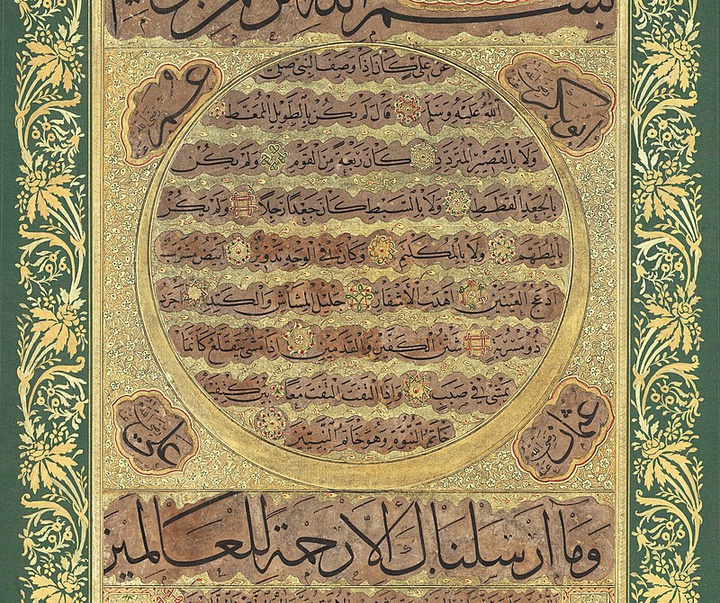 بسم الله الرحمن الرحيم
ابوبكر رضي الله عنه
عمر رضي الله عنه
عن علي كان اذا وصف النبي صلى
الله عليه وسلم قال لم يكن بالطويل الممغط
ولا بالقصير المتردد كان ربعة من القوم ولم يكن
بالجعد القطط ولا بالسبط كان جعدا رجلا ولم يكن
بالمطهم ولا بالمكلثم وكان في الوجه تدوير ابيض مشرب
ادعج العينين اهدب الاشفار جليل المشاش والكتد اجرد
ذو مسربة شثن الكفين والقدمين اذا مشى يتقلع كانما
يمشي في صبب واذا التفت التفت معا بين كتفيه
خاتم النبوة وهو خاتم النبيين
عثمان رضي الله عنه
علي رضي الله عنه
وما ارسلناك الا رحمة للعالمين